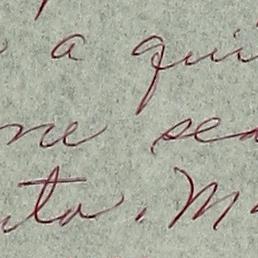 a qui
ne sea
ta. M